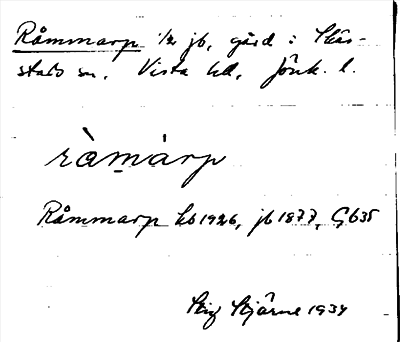 Råmmarp 1/2 jb, gård i Skär-
stads sn, Vista hd, Jönk. l.
ràmàrp
Råmmarp kb 1926, jb 1877, G 635
Stig Stjärne 1934